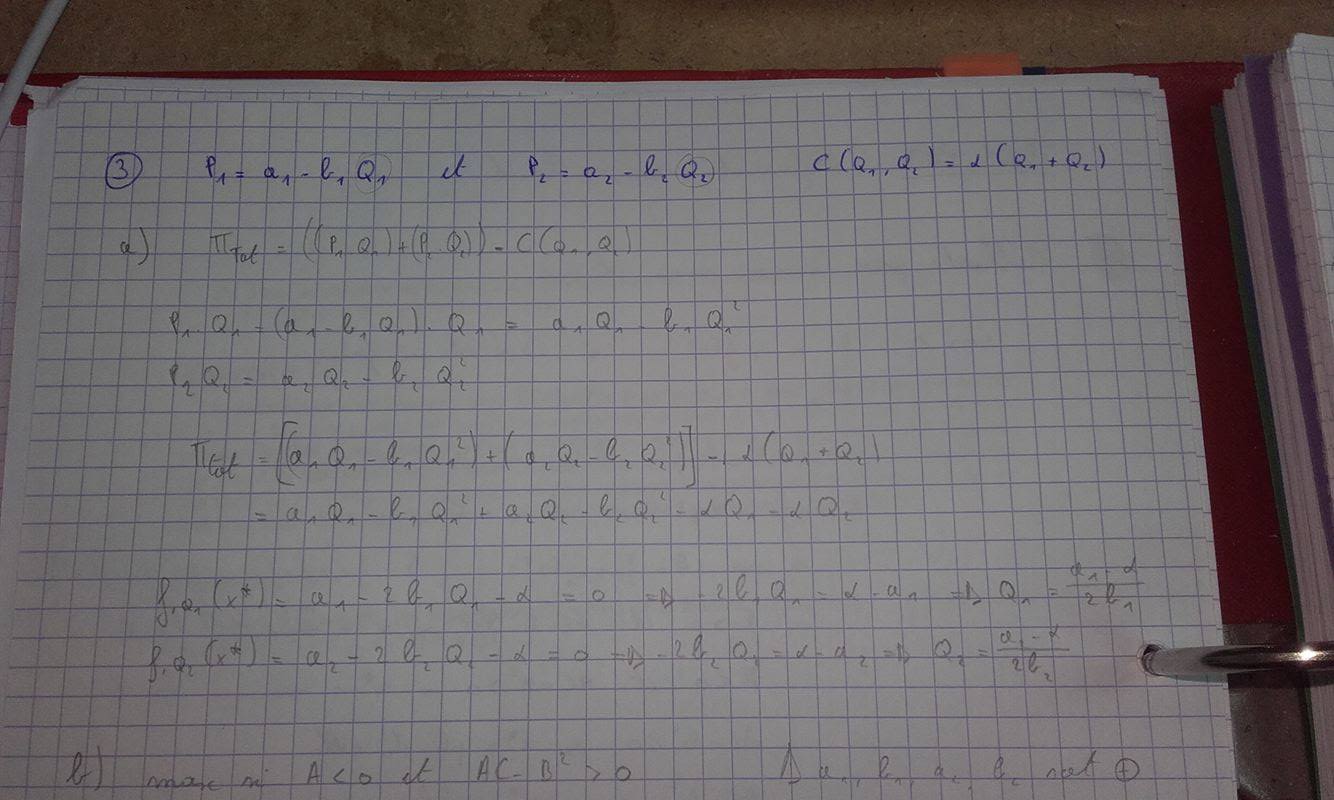 ③ P₁ = a₁ - b₁ Q₁ et P₂ = a₂ - b₂ Q₂ C(Q₁, Q₂) = α(Q₁ + Q₂)
a) Π_Tot = ((P₁ Q₁) + (P₂ Q₂)) - C(Q₁, Q₂)
P₁ · Q₁ = (a₁ - b₁ Q₁) · Q₁ = a₁ Q₁ - b₁ Q₁²
P₂ Q₂ = a₂ Q₂ - b₂ Q₂²
Π_tot = [(a₁ Q₁ - b₁ Q₁²) + (a₂ Q₂ - b₂ Q₂²)] - α(Q₁ + Q₂)
= a₁ Q₁ - b₁ Q₁² + a₂ Q₂ - b₂ Q₂² - α Q₁ - α Q₂
f'Q₁(x*) = a₁ - 2 b₁ Q₁ - α = 0 => - 2 b₁ Q₁ = α - a₁ => Q₁ = (a₁ - α)/(2 b₁)
f'Q₂(x*) = a₂ - 2 b₂ Q₂ - α = 0 => - 2 b₂ Q₂ = α - a₂ => Q₂ = (a₂ - α)/(2 b₂)
b) max si A < 0 et AC - B² > 0 Δ a₁, b₁, a₂, b₂ sont ⊕